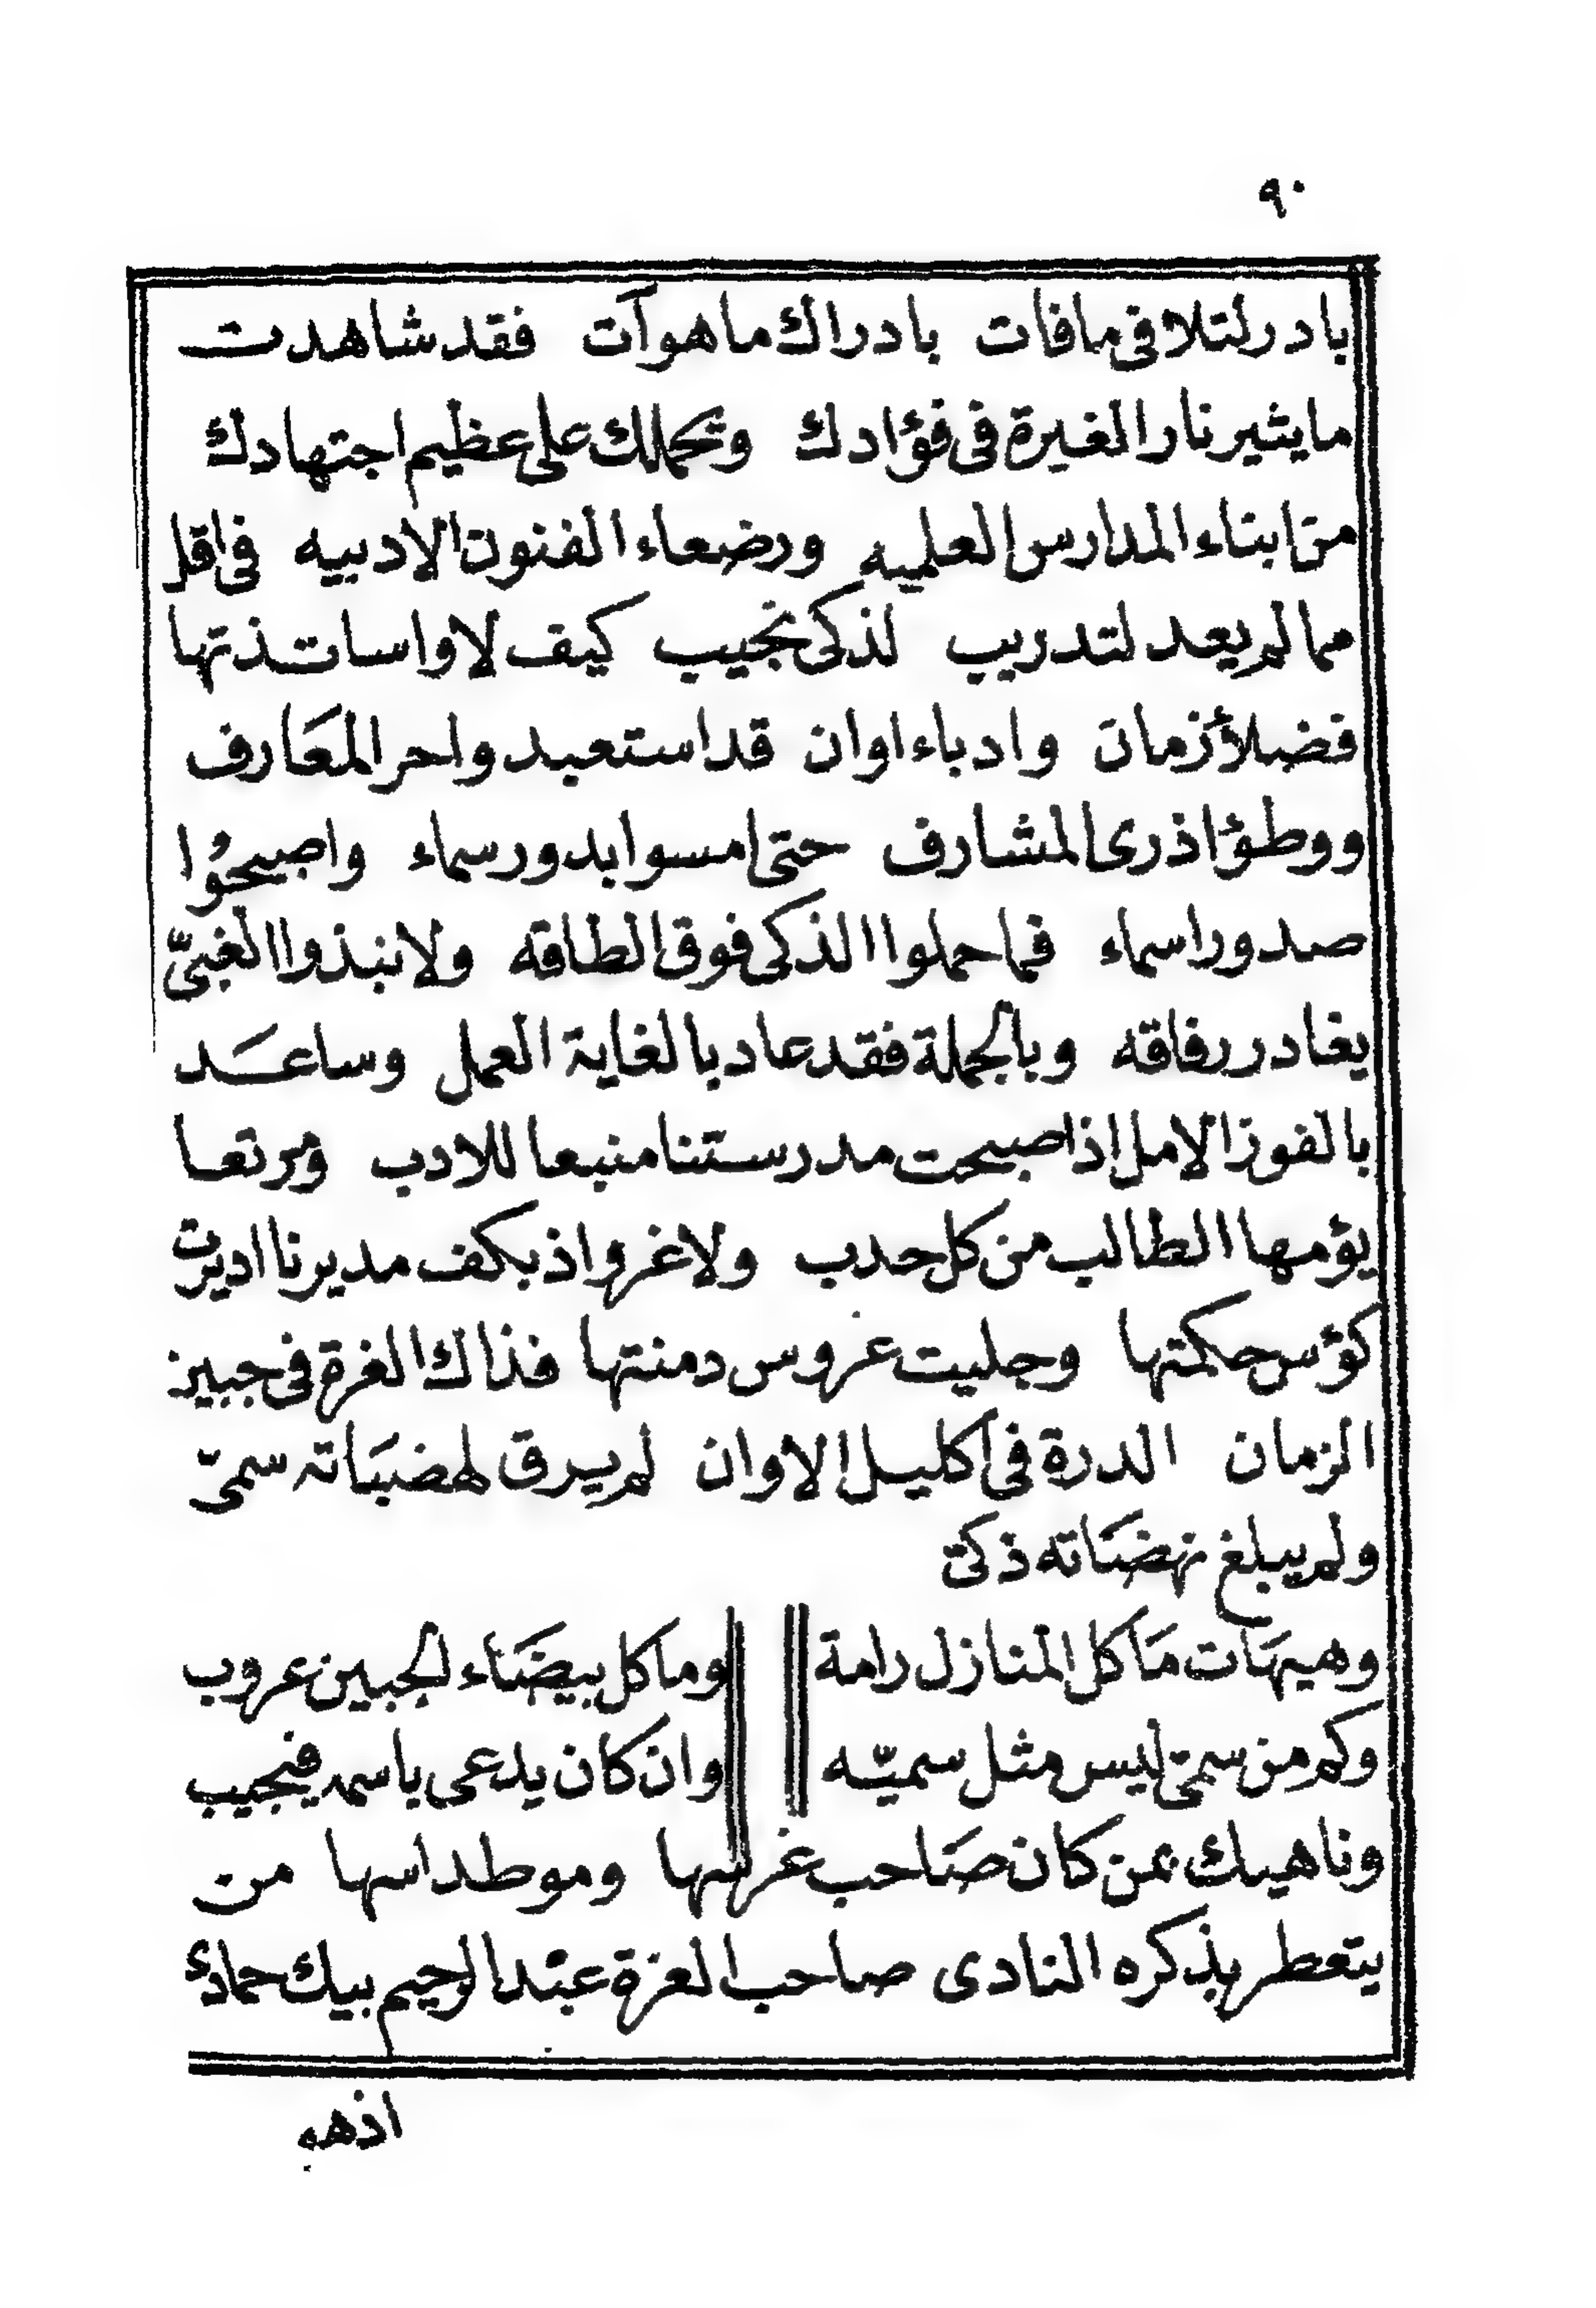 ٩٠
بادر لتلافى مافات بادراك ماهوآت فقد شاهدت
مايثير نار الغيرة فى فؤادك ويحملك على عظيم اجتهادك
من ابناء المدارس العلميه ورضعاء الفنون الادبيه فى اقل
مما لم يعد لتدريب لذكى نجيب كيف لا واساتذتها
فضلأ زمان وادباء اوان قد استعبدوا حر المعارف
ووطؤا ذرى المشارف حتى امسوا بدور سماء واصبحوُا
صدور اسماء فما حملوا الذكى فوق الطاقه ولا نبذوا الغبىّ
يغادر رفاقه وبالجملة فقد عاد بالغاية العمل وساعَد
بالفوز الامل اذ اصبحت مدرستنا منبعا للادب ومرتعا
يؤمها الطالب من كل حدب ولاغرو اذ بكف مديرنا اديرت
كؤس حكمتها وجليت عروس دمنتها فذاك الغرة فى جبين
الزمان الدرة فى اكليل الاوان لم يرق لهضبَاته سمىّ
ولم يبلغ نهضَاته ذكىّ
وهيهَات مَاكل المنازل رامة وماكل بيضَاء الجبين عروب
وكم من سمىّ ليس مثل سميّه وان كان يدعى باسمه فنجيب
وناهيك بمن كان صَاحب غرسها وموطد اسها من
يتعطر بذكره النادى صاحب العزة عبْد الرحيم بيك حمادى
اذهو